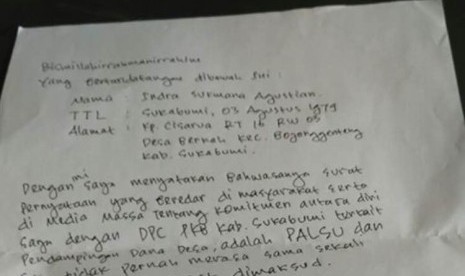 Bismillahirrahmanirrahim
Yang bertandatangan dibawah ini :
Nama : Indra Surmana Agustian.
TTL : Sukabumi, 03 Agustus 1979
Alamat : Kp. Cisarua RT 16 RW 05
Desa Berkah Kec. Bojonggenteng
Kab. Sukabumi.
Dengan ini saya menyatakan Bahwasanya surat
Pernyataan yang beredar di masyarakat serta
di Media Massa tentang komitmen antara diri
saya dengan DPC PKB Kab. Sukabumi terkait
Pendampingan Dana Desa, adalah PALSU dan
tidak pernah merasa sama sekali
dimaksud.